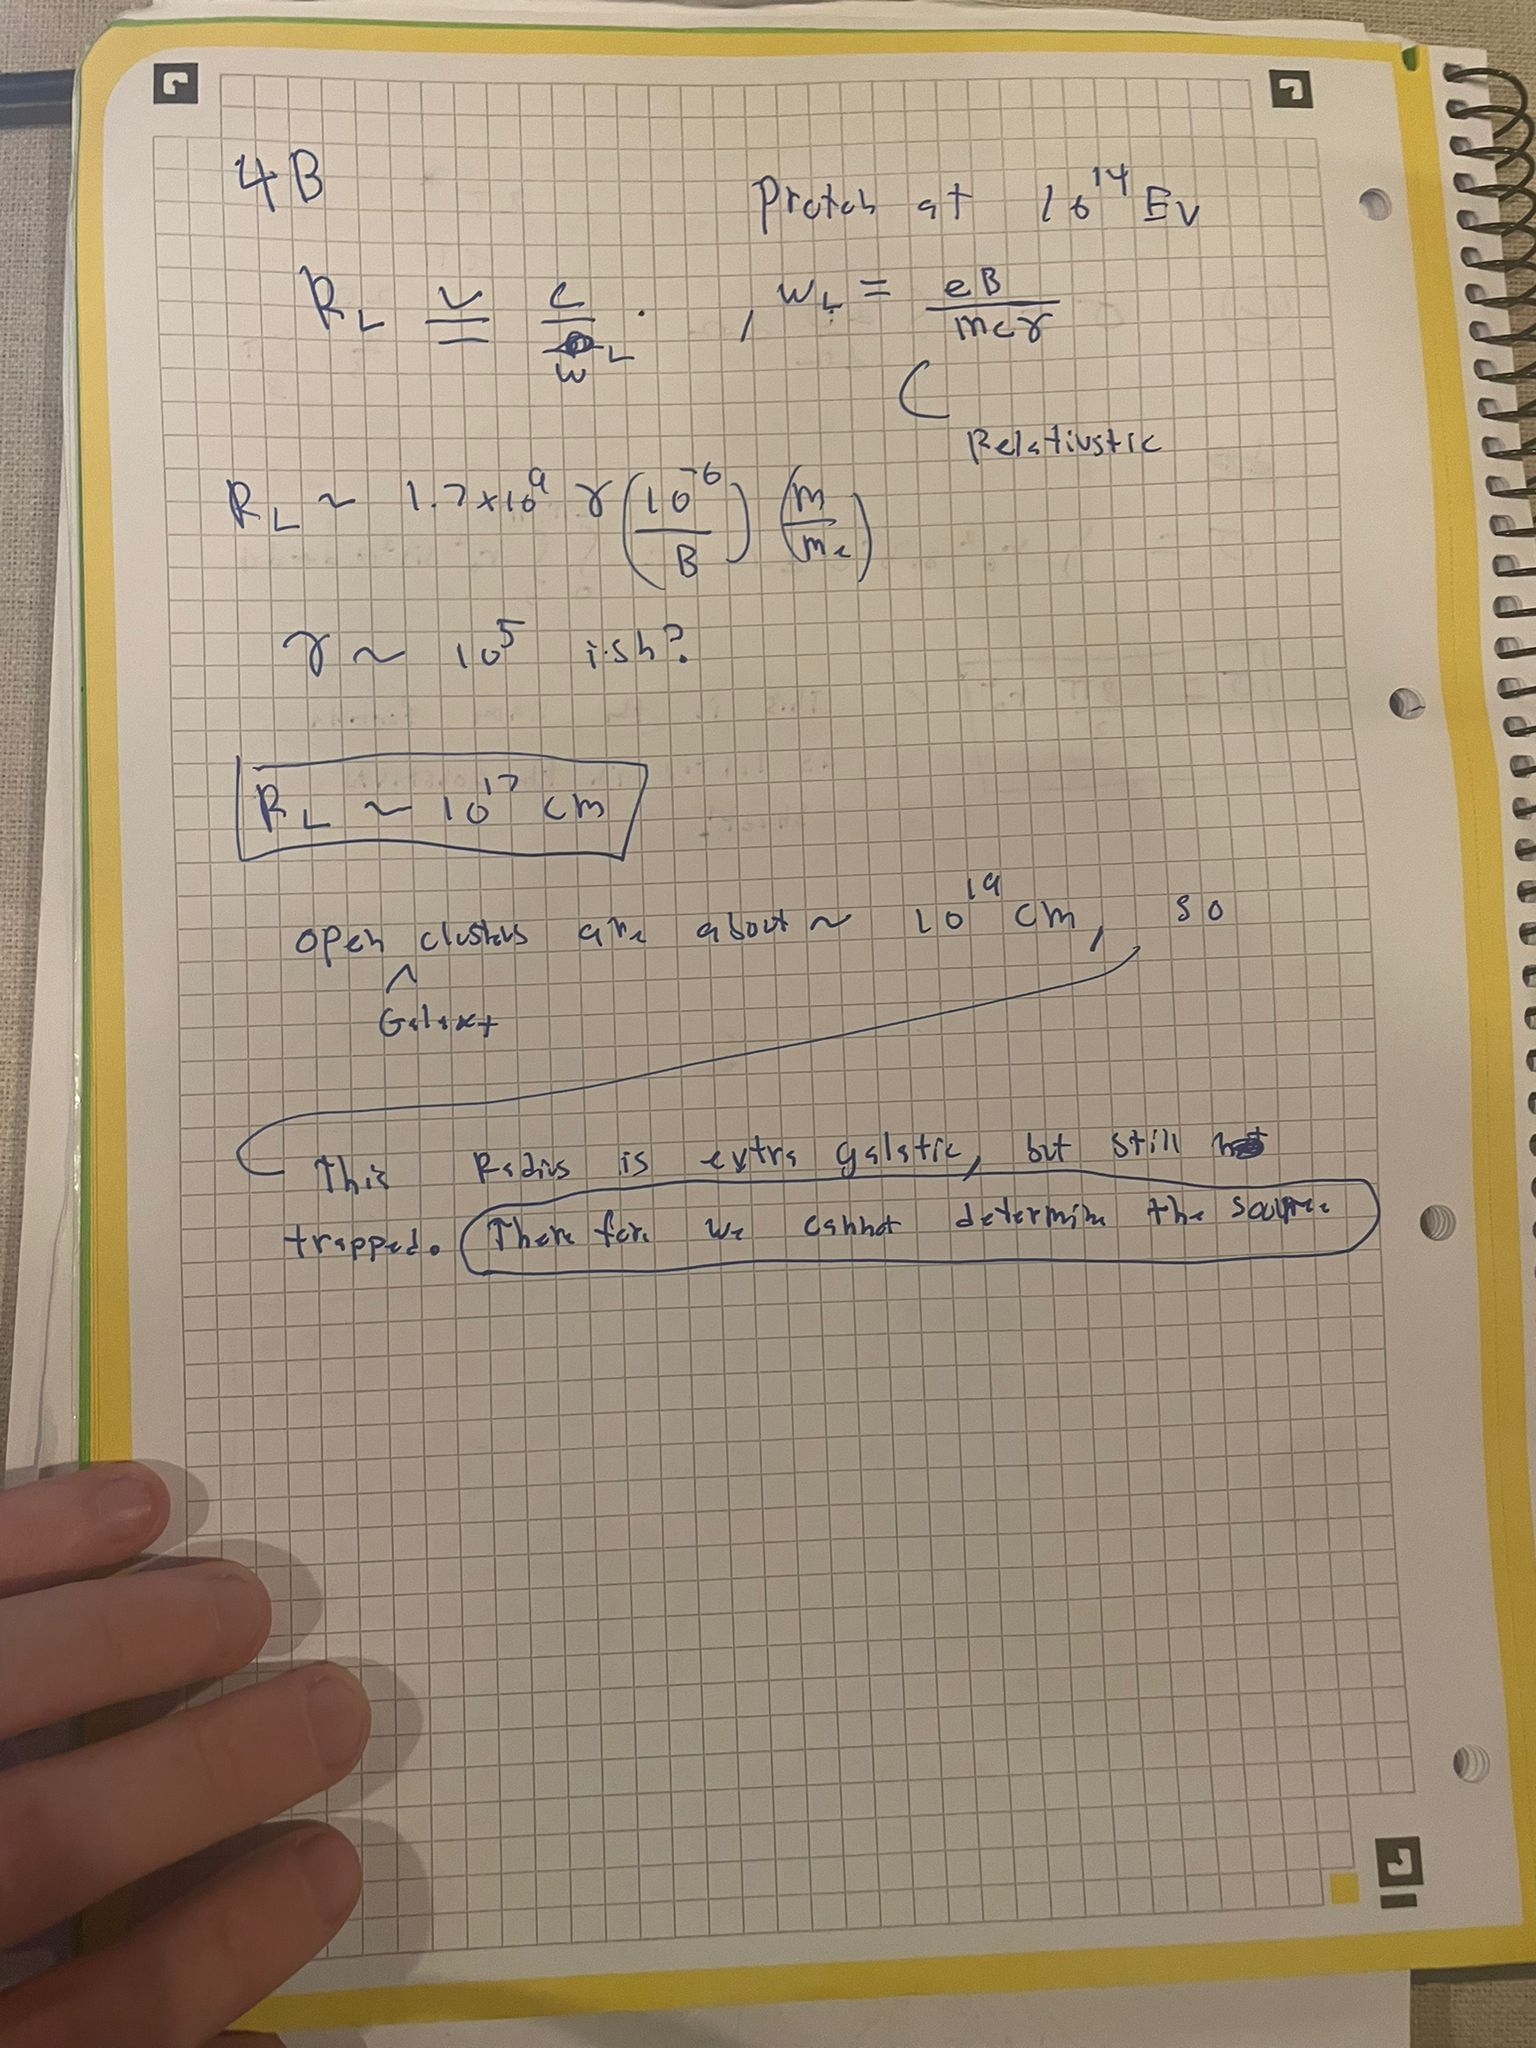 4B
Proton at 10^14 Ev
R_L = v = c/ω_L . , ω_L = eB/mcγ
Relativstic
R_L ~ 1.7×10^9 γ (10^-6/B) (m/me)
γ ~ 10^5 ish?
R_L ~ 10^17 cm
open clusters are about ~ 10^19 cm, so
^
Galaxy
This Radius is extra galatic, but still
trapped. There fore we cannot determine the source